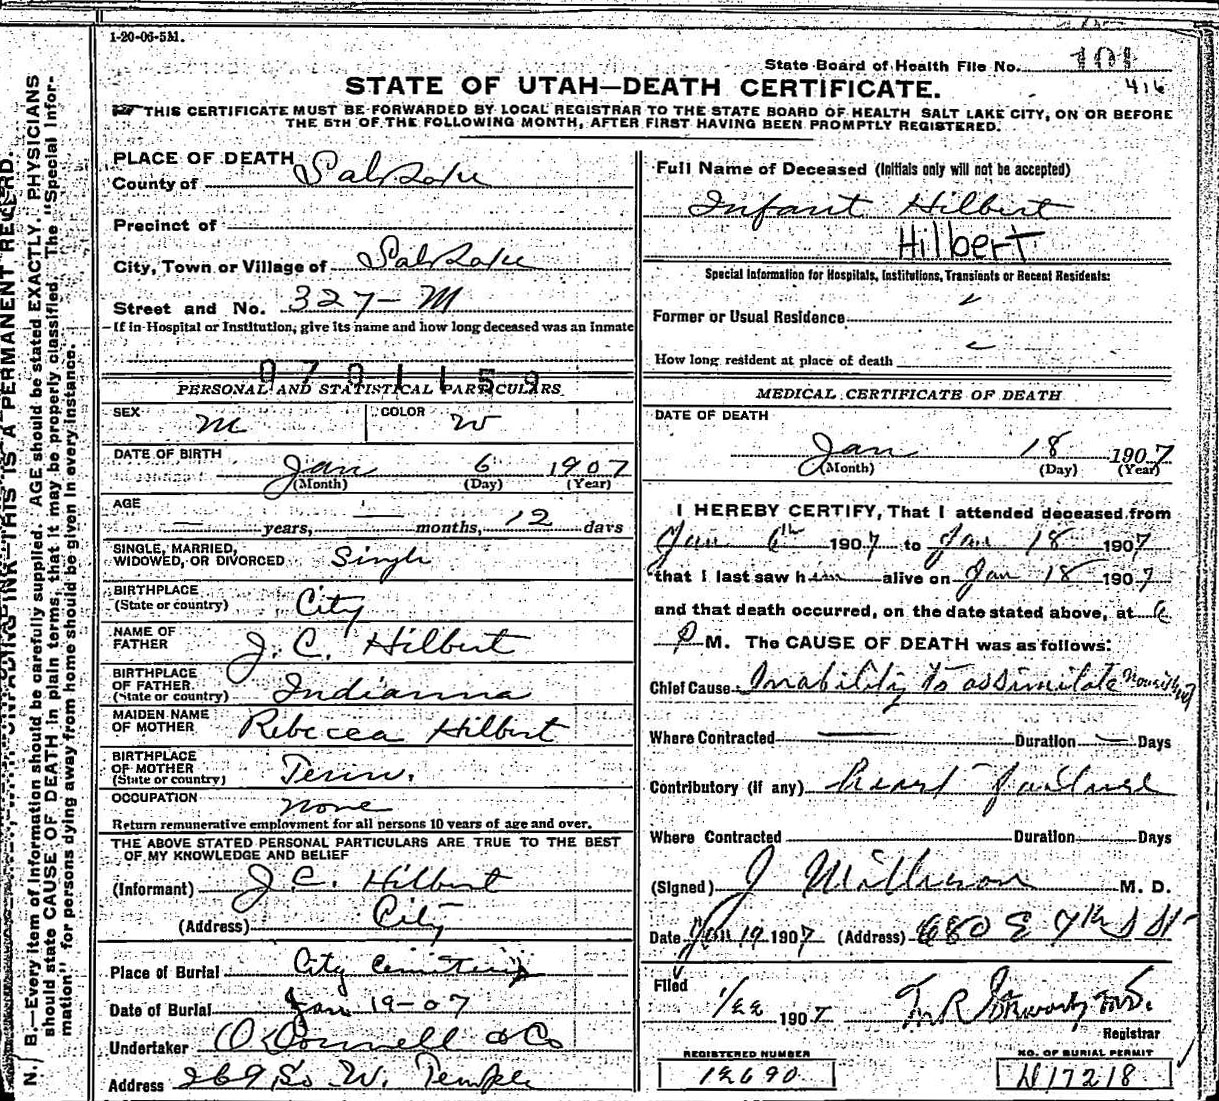 1-20-06-5M.
State Board of Health File No. 101
416
STATE OF UTAH—DEATH CERTIFICATE.
THIS CERTIFICATE MUST BE FORWARDED BY LOCAL REGISTRAR TO THE STATE BOARD OF HEALTH SALT LAKE CITY, ON OR BEFORE
THE 5TH OF THE FOLLOWING MONTH, AFTER FIRST HAVING BEEN PROMPTLY REGISTERED.
PLACE OF DEATH
County of Salt Lake
Precinct of
City, Town or Village of Salt Lake
Street and No. 327- M
If in Hospital or Institution, give its name and how long deceased was an Inmate
0701159
PERSONAL AND STATISTICAL PARTICULARS
SEX M COLOR W
DATE OF BIRTH
Jan 6 1907
(Month) (Day) (Year)
AGE
— years, — months, 12 days
SINGLE, MARRIED,
WIDOWED, OR DIVORCED Single
BIRTHPLACE
(State or country) City
NAME OF
FATHER J. C. Hilbert
BIRTHPLACE
OF FATHER
(State or country) Indianna
MAIDEN NAME
OF MOTHER Rebecca Hilbert
BIRTHPLACE
OF MOTHER
(State or country) Tenn.
OCCUPATION none
Return remunerative employment for all persons 10 years of age and over.
THE ABOVE STATED PERSONAL PARTICULARS ARE TRUE TO THE BEST
OF MY KNOWLEDGE AND BELIEF
(Informant) J. C. Hilbert
(Address) City
Place of Burial City Cemetery
Date of Burial Jan 19-07
Undertaker O'Donnell & Co
Address 269 So W. Temple
Full Name of Deceased (Initials only will not be accepted)
Infant Hilbert
Hilbert
Special Information for Hospitals, Institutions, Transients or Recent Residents:
Former or Usual Residence
How long resident at place of death
MEDICAL CERTIFICATE OF DEATH
DATE OF DEATH
Jan 18 1907
(Month) (Day) (Year)
I HEREBY CERTIFY, That I attended deceased from
Jan 6th 1907 to Jan 18 1907
that I last saw him alive on Jan 18 1907
and that death occurred, on the date stated above, at 6
P M. The CAUSE OF DEATH was as follows:
Chief Cause Inability to assimilate
Where Contracted — Duration — Days
Contributory (if any) heart failure
Where Contracted Duration Days
(Signed) J M. D.
Date Jan 19 1907 (Address) 680 E 7th S St
Filed
1/22 1907
Registrar
REGISTERED NUMBER
12690
NO. OF BURIAL PERMIT
H17218
N. B.—Every item of information should be carefully supplied. AGE should be stated EXACTLY. PHYSICIANS
should state CAUSE OF DEATH in plain terms, that it may be properly classified. The "Special Infor-
mation" for persons dying away from home should be given in every instance.
UNFADING INK—THIS IS A PERMANENT RECORD.